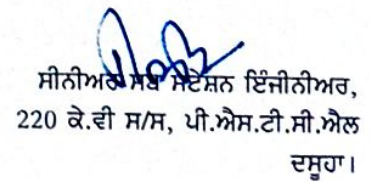 ਸੀਨੀਅਰ ਸਬ ਸਟੇਸ਼ਨ ਇੰਜੀਨੀਅਰ,
220 ਕੇ.ਵੀ ਸ/ਸ, ਪੀ.ਐਸ.ਟੀ.ਸੀ.ਐਲ
ਦਸੂਹਾ।